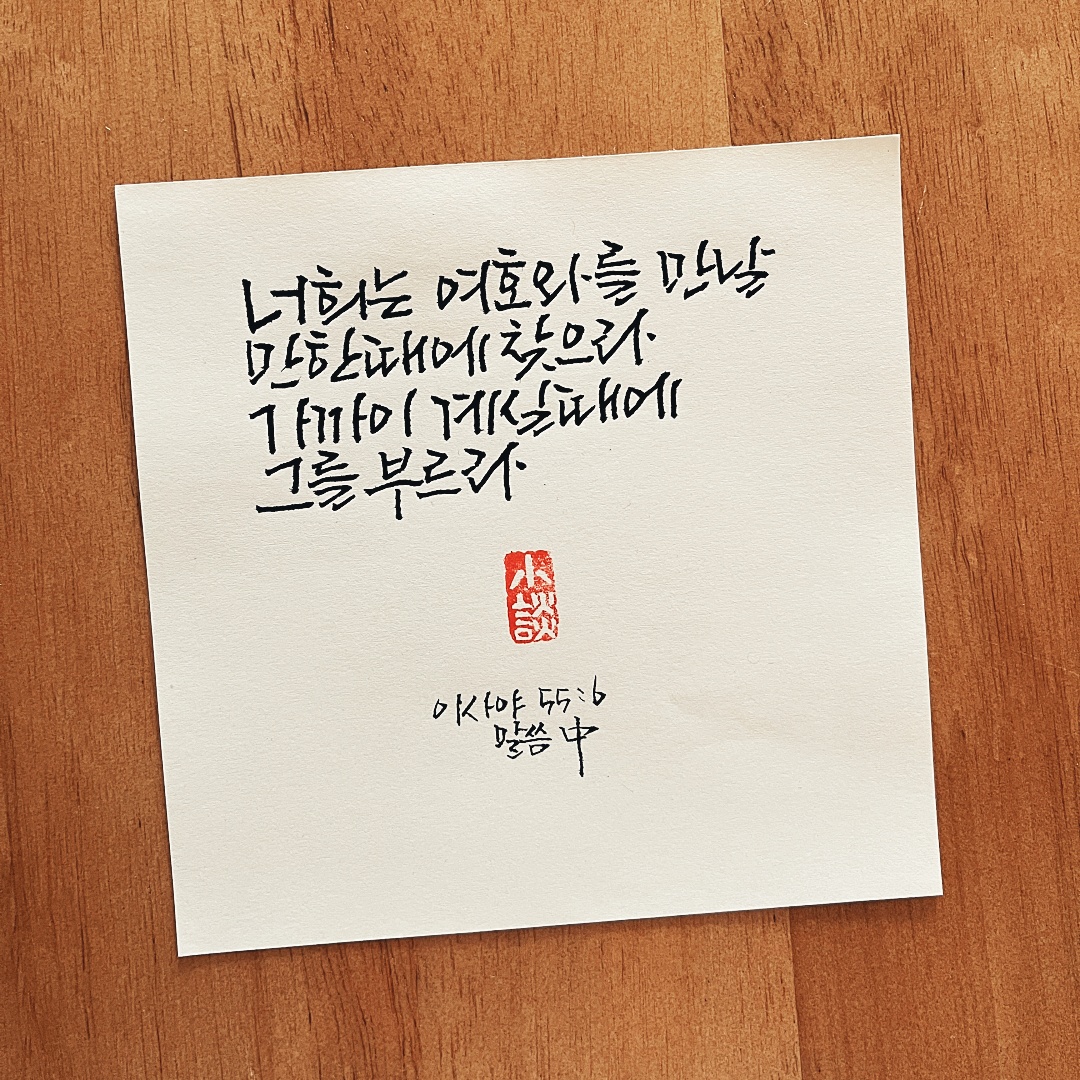 너희는 여호와를 만날
만한때에 찾으라
가까이 계실때에
그를 부르라
小
談
이사야 55:6
말씀 中